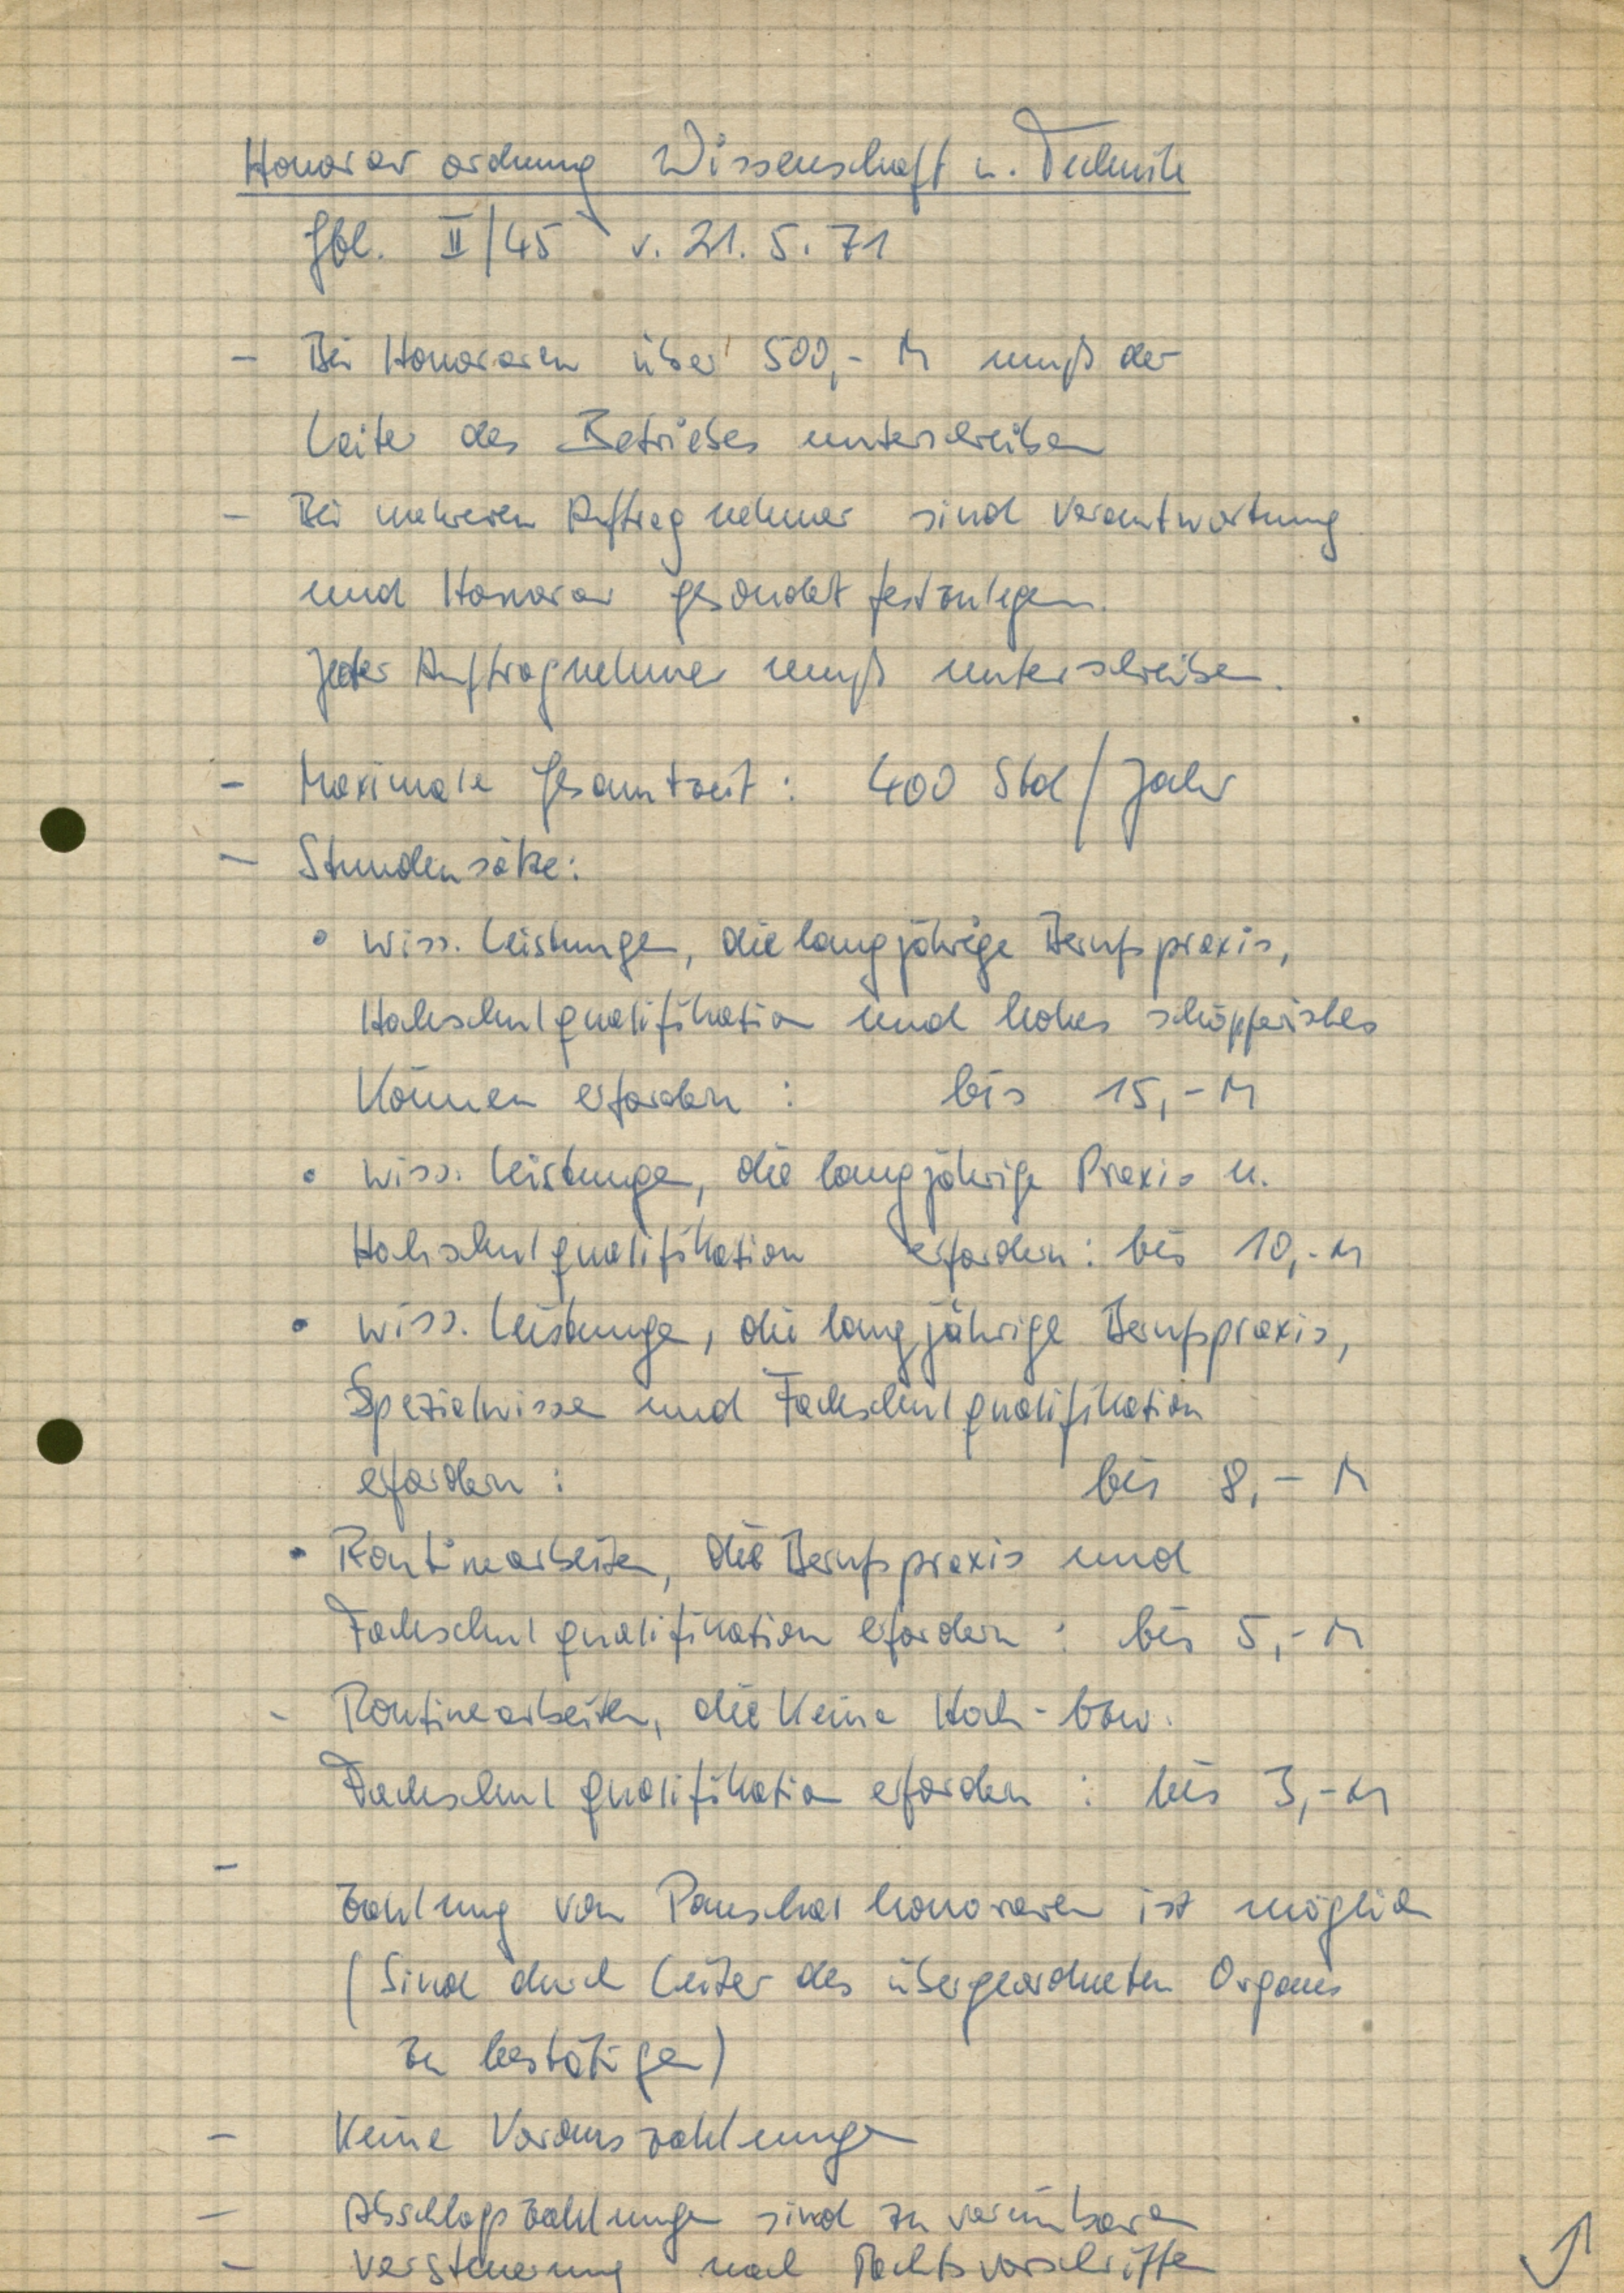 Honorarordnung Wissenschaft u. Technik
Gbl. II/45 v. 21.5.71
- Bei Honoraren über 500,- M muß der
Leiter des Betriebes unterschreiben
- Bei mehreren Auftragnehmer sind Verantwortung
und Honorar gesondert festzulegen.
Jeder Auftragnehmer muß unterschreiben.
- Maximale Gesamtzeit: 400 Std/Jahr
- Stundensätze:
• wiss. Leistungen, die langjährige Berufspraxis,
Hochschulqualifikation und hohes schöpferisches
Können erfordern: bis 15,- M
• wiss. Leistungen, die langjährige Praxis u.
Hochschulqualifikation erfordern: bis 10,- M
• wiss. Leistungen, die langjährige Berufspraxis,
Spezialwissen und Fachschulqualifikation
erfordern: bis 8,- M
• Routinearbeiten, die Berufspraxis und
Fachschulqualifikation erfordern: bis 5,- M
- Routinearbeiten, die keine Hoch- bzw.
Fachschulqualifikation erfordern: bis 3,- M
- Zahlung von Pauschalhonoraren ist möglich
(Sind durch Leiter des übergeordneten Organes
zu bestätigen)
- Keine Vorauszahlungen
- Abschlagszahlungen sind zu vereinbaren
- Versteuerung nach Rechtsvorschriften